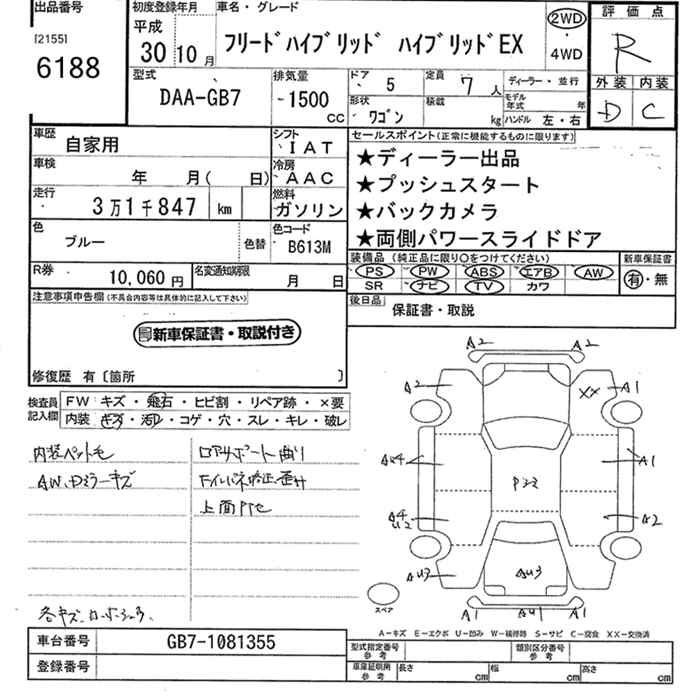 出品番号
[2155]
6188
初度登録年月
平成
30 10月
車名・グレード
フリードハイブリッド ハイブリッドEX
2WD
・
4WD
評価点
R
外装 内装
D C
型式
DAA-GB7
排気量
1500 CC
ドア 5
定員 7 人
ディーラー・並行
形状 ワゴン
積載 kg
モデル年式 年
ハンドル 左・右
車歴 自家用
シフト IAT
車検 年 月( 日)
冷房 AAC
走行 3万1千847 km
燃料 ガソリン
色 ブルー 色替
色コード B613M
R券 10,060円
名変通知期限 月 日
セールスポイント(正常に機能するものに限ります)
★ディーラー出品
★プッシュスタート
★バックカメラ
★両側パワースライドドア
装備品(純正品に限り○をつけてください) 新車保証書
PS PW ABS エアB AW 有・無
SR ナビ TV カワ
後日品 保証書・取説
注意事項申告欄(不具合内容等は具体的に記入して下さい)
新車保証書・取説付き
修復歴 有〔箇所 〕
検査員記入欄
FW キズ・飛石・ヒビ割・リペア跡・×要
内装 キズ・汚れ・コゲ・穴・スレ・キレ・破レ
内装ペット毛
AW、Dミラーキズ
ロアサポート曲り
上面
A2 A2
A2 XX A1
A1
P22
A2
AU3
A1 AU1 A1
スペア
A-キズ E-エクボ U-凹み W-補修跡 S-サビ C-腐食 XX-交換済
車台番号 GB7-1081355
登録番号
型式指定番号 参考
類別区分番号 参考
車庫証明用 参考
長さ cm 幅 cm 高さ cm